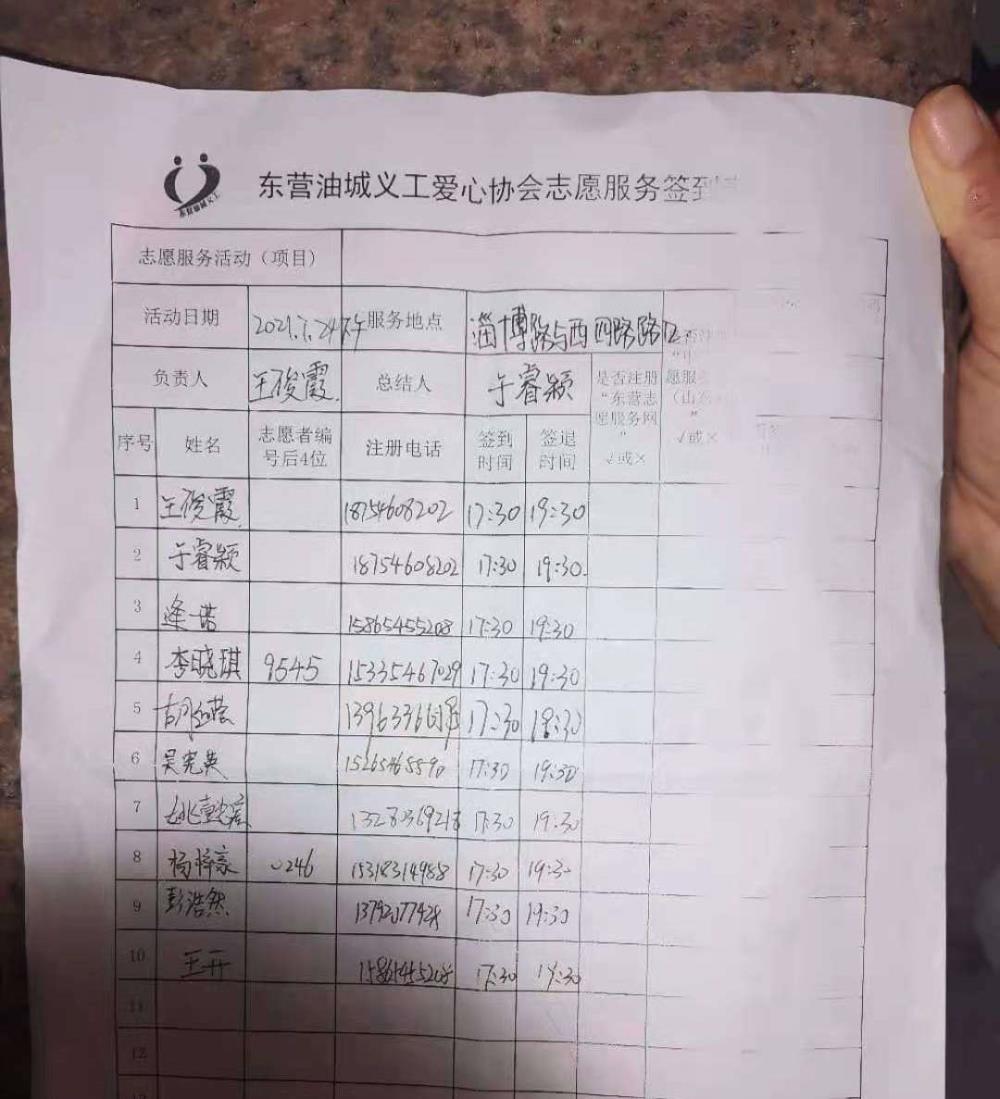 东营油城义工爱心协会志愿服务签到
东营油城义工
志愿服务活动（项目）
活动日期 2021.7.24下午 服务地点 淄博路与西四路路口
负责人 王俊霞 总结人 于睿颖 是否注册“东营志愿服务网” √或×
序号 姓名 志愿者编号后4位 注册电话 签到时间 签退时间 √或×
1 王俊霞 18754608202 17:30 19:30
2 于睿颖 18754608202 17:30 19:30
3 逄一诺 15865455208 17:30 19:30
4 李晓琪 9545 15335467029 17:30 19:30
5 17:30 19:30
6 吴宪英 15265465590 17:30 19:30
7 13280369218 17:30 19:30
8 杨梓豪 0246 15318314988 17:30 19:30
9 彭浩然 17:30 19:30
10 王开 15865455208 17:30 19:30
11
12